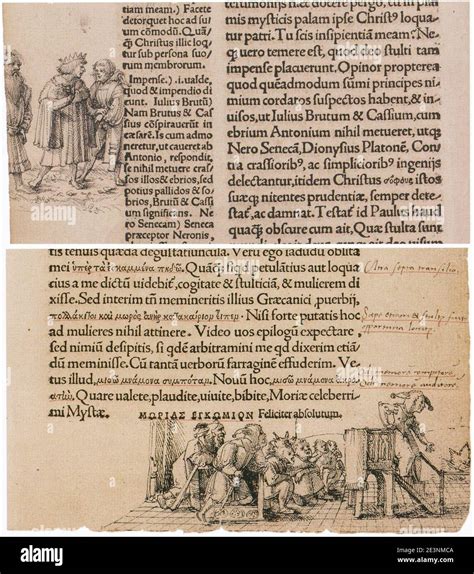 etiam mem.) Facete
detorquet hoc ad su
um cōmodū. Quaſi
ꝙ Christus illic loq̄
tur sub persona suo/
rum membrorum.
Impense.) i. ualde,
quod & impendio di
cunt. Iulius Brutū)
Nam Brutus & Caſ
sius cōspirauerūt in
cæsarē. Is cum admo
neretur, ut caueret ab
Antonio, respondit,
se nihil metuere craſ
sos illos & ebrios, sed
potius pallidos & so/
brios, Brutū & Caſſi
um significans. Ne
ro Senecam) Seneca
præceptor Neronis,
pti mysticis palam ipse Christꝰ loquat̃
patri. Tu scis insipientiam meam. Ne
quero temere est, quod deo stulti tam
impense placuerunt. Opinor propterea
quod quēadmodum sumi principes ni
mium cordatos suspectos habent, & in/
uisos, ut Iulius Brutum & Cassium, cum
ebrium Antonium nihil metueret, utq̃
Nero Senecā, Dionysius Platonē. Con/
tra crassioribꝰ, ac simplicioribꝰ ingenijs
delectantur, itidem Christus σοφοὺς istos
suæq; nitentes prudentiæ, semper dete/
stat̃, ac damnat. Testat̃ id Paulus haud
quaq̃ obscure cum ait. Quæ stulta sunt
tis tenuis quædā degustatiuncula. Verū ego iādudū oblita
mei ὑπὲρ τὰ ἐσκαμμένα πηδῶ. Quāq̃ si qd petulātius aut loqua
cius a me dictū uidebit̃, cogitate & stulticiā, & mulierem di
xisse. Sed interim tñ memineritis illius Græcanici, puerbij,
πολλάκι τοι καὶ μωρὸς ἀνὴρ κατακαίριον εἶπεν. Nisi forte putatis hoc
ad mulieres nihil attinere. Video uos epilogū expectare,
sed nimiū desipitis, si qdē arbitramini me qd dixerim etiā
dū meminisse. Cū tantā uerborū farraginē effuderim. Ve
tus illud, μισῶ μνάμονα συμπόταν. Nouū hoc, μισῶ μνάμονα ἀκρο
ατὴν. Quare ualete, plaudite, uiuite, bibite, Moriæ celeberri
mi Mystæ.
ΜΩΡΙΑΣ ΕΓΚΩΜΙΟΝ Feliciter absolutum.
alamy
Image ID: 2E3NMCA
www.alamy.com